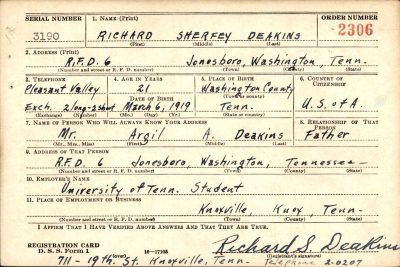 SERIAL NUMBER 1. NAME (Print) ORDER NUMBER
3190 RICHARD SHERFEY DEAKINS 2306
(First) (Middle) (Last)
2. ADDRESS (Print)
R.F.D. 6 Jonesboro, Washington, Tenn.
(Number and street or R. F. D. number) (Town) (County) (State)
3. TELEPHONE 4. AGE IN YEARS 5. PLACE OF BIRTH 6. COUNTRY OF CITIZENSHIP
Pleasant Valley 21 Washington County
DATE OF BIRTH (Town or county)
Exch. 2 long-2 short March 6, 1919 Tenn. U.S. of A.
(Exchange) (Number) (Mo.) (Day) (Yr.) (State or country)
7. NAME OF PERSON WHO WILL ALWAYS KNOW YOUR ADDRESS 8. RELATIONSHIP OF THAT PERSON
Mr. Argil A. Deakins Father
(Mr., Mrs., Miss) (First) (Middle) (Last)
9. ADDRESS OF THAT PERSON
R.F.D. 6 Jonesboro, Washington, Tennessee
(Number and street or R. F. D. number) (Town) (County) (State)
10. EMPLOYER'S NAME
University of Tenn. Student
11. PLACE OF EMPLOYMENT OR BUSINESS
Knoxville, Knox, Tenn.
(Number and street or R. F. D. number) (Town) (County) (State)
I AFFIRM THAT I HAVE VERIFIED ABOVE ANSWERS AND THAT THEY ARE TRUE.
REGISTRATION CARD
D. S. S. Form 1 16-17105 Richard S. Deakins
(over) (Registrant's signature)
711-19th St. Knoxville, Tenn. Telephone 2-0207